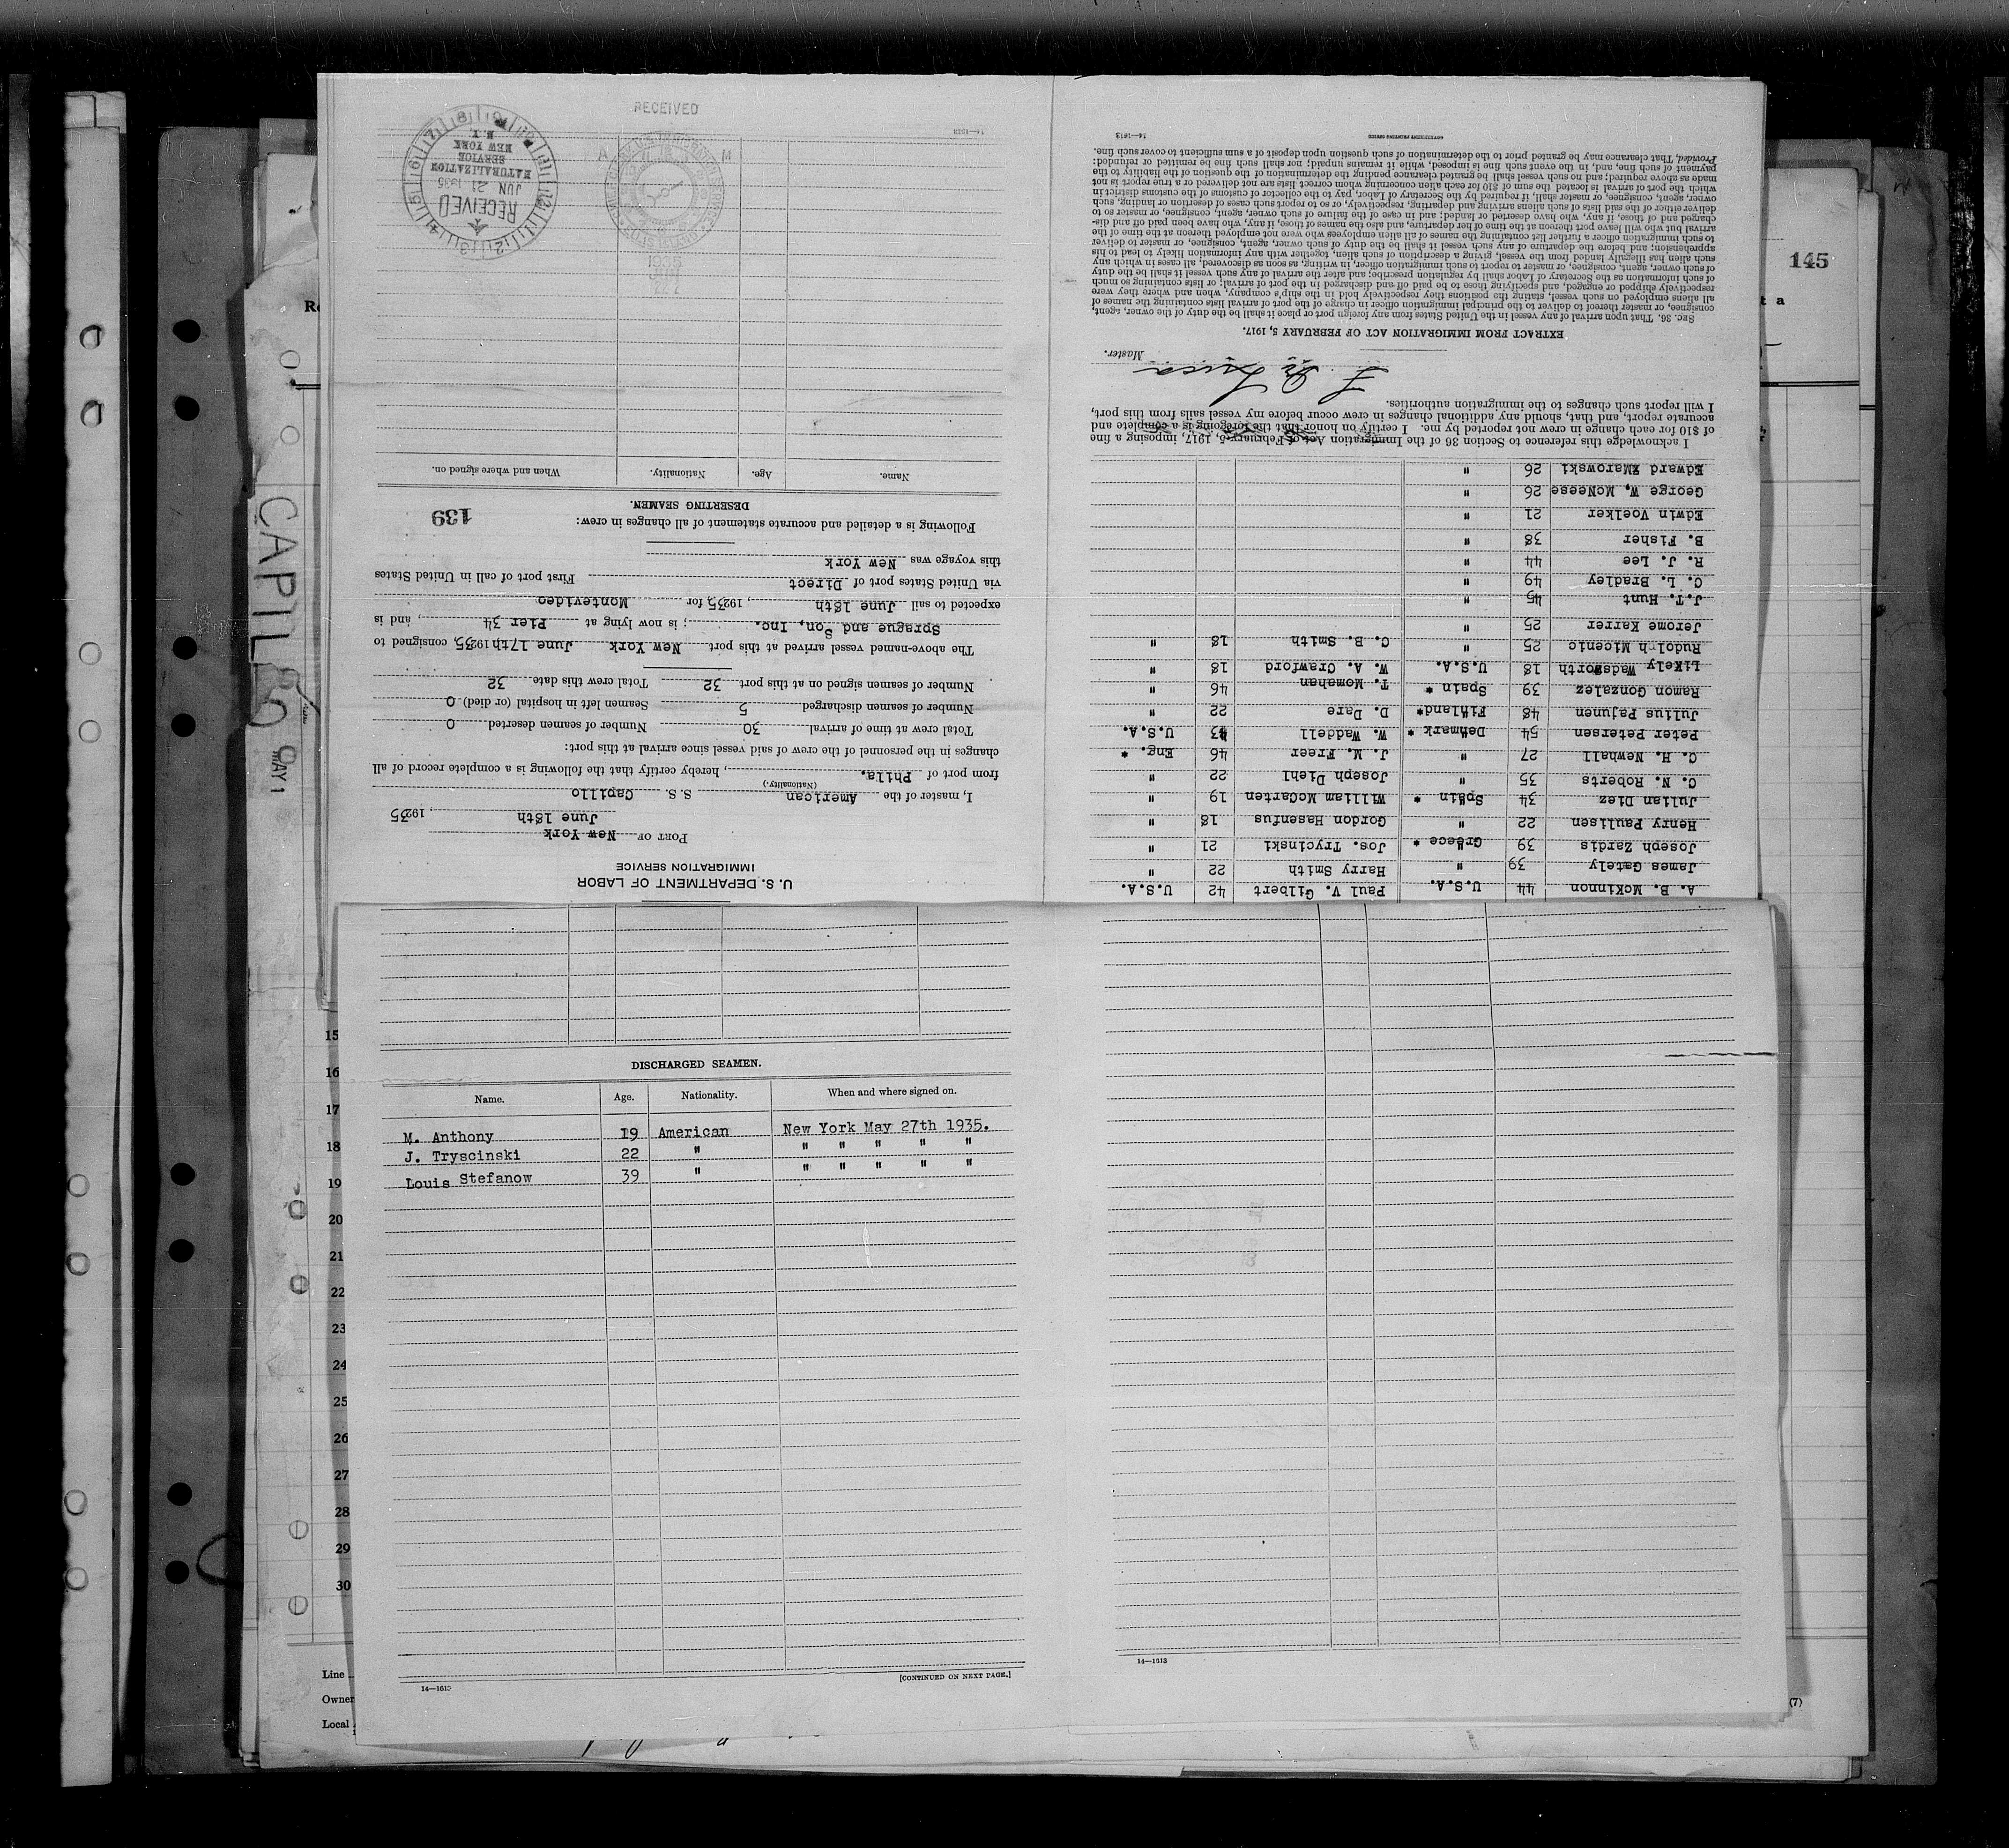 U. S. DEPARTMENT OF LABOR
IMMIGRATION SERVICE
PORT OF New York
June 18th, 1935
I, master of the American S. S. Capillo
(Nationality.)
from port of Phila., hereby certify that the following is a complete record of all
changes in the personnel of the crew of said vessel since arrival at this port:
Total crew at time of arrival 30 Number of seamen deserted 0
Number of seamen discharged 5 Seamen left in hospital (or died) 0
Number of seamen signed on at this port 32 Total crew this date 32
The above-named vessel arrived at this port New York June 17th 1935 consigned to
Sprague and Son, Inc. ; is now lying at Pier 34, and is
expected to sail June 18th, 1935 for Montevideo
via United States port of Direct First port of call in United States
this voyage was New York
Following is a detailed and accurate statement of all changes in crew:
139
DESERTING SEAMEN.
Name. Age. Nationality. When and where signed on.
RECEIVED
JUN 21 1935
NATURALIZATION
SERVICE
NEW YORK
N. Y.
RECEIVED
1935
14—1613
A. B. McKinnon 44 U.S.A. Paul V. Gilbert 42 U.S.A.
James Gately 39 " Harry Smith 22 "
Joseph Zardis 39 Greece * Jos. Trycinski 21 "
Henry Paulisen 22 " Gordon Hasenfus 18 "
Julian Diez 34 Spain * William McCarten 19 "
C. N. Roberts 35 " Joseph Diehl 22 "
C. H. Newhall 27 " J. M. Freer 46 Eng. *
Peter Petersen 54 Denmark * W. Waddell 43 U.S.A.
Julius Pajunen 48 Finland* D. Dare 22 "
Ramon Gonzalez 39 Spain * T. Momahan 46 "
Likely Wadsworth 18 U.S.A. W. A. Crawford 18 "
Rudolh Micenic 25 " C. B. Smith 18 "
Jerome Karrer 25 "
J.T. Hunt 45 "
C. L. Bradley 49 "
R. J. Lee 44 "
B. Fisher 38 "
Edwin Voelker 21 "
George W. McNeese 26 "
Edward Marowski 26 "
I acknowledge this reference to Section 36 of the Immigration Act of February 5, 1917, imposing a fine
of $10 for each change in crew not reported by me. I certify on honor that the foregoing is a complete and
accurate report, and that, should any additional changes in crew occur before my vessel sails from this port,
I will report such changes to the immigration authorities.
Master.
EXTRACT FROM IMMIGRATION ACT OF FEBRUARY 5, 1917.
SEC. 36. That upon arrival of any vessel in the United States from any foreign port or place it shall be the duty of the owner, agent,
consignee, or master thereof to deliver to the principal immigration officer in charge of the port of arrival lists containing the names of
all aliens employed on such vessel, stating the positions they respectively hold in the ship's company, when and where they were
respectively shipped or engaged, and specifying those to be paid off and discharged in the port of arrival; or lists containing so much
of such information as the Secretary of Labor shall by regulation prescribe; and after the arrival of any such vessel it shall be the duty
of such owner, agent, consignee, or master to report to such immigration officer, in writing, as soon as discovered, all cases in which any
such alien has illegally landed from the vessel, giving a description of such alien, together with any information likely to lead to his
apprehension; and before the departure of any such vessel it shall be the duty of such owner, agent, consignee, or master to deliver
to such immigration officer a further list containing the names of all alien employees who were not employed thereon at the time of the
arrival but who will leave port thereon at the time of her departure, and also the names of those, if any, who have been paid off and dis-
charged and of those, if any, who have deserted or landed; and in case of the failure of such owner, agent, consignee, or master so to
deliver either of the said lists of such aliens arriving and departing, respectively, or so to report such cases of desertion or landing, such
owner, agent, consignee, or master shall, if required by the Secretary of Labor, pay to the collector of customs of the customs district in
which the port of arrival is located the sum of $10 for each alien concerning whom correct lists are not delivered or a true report is not
made as above required; and no such vessel shall be granted clearance pending the determination of the question of the liability to the
payment of such fine, and, in the event such fine is imposed, while it remains unpaid; nor shall such fine be remitted or refunded:
Provided, That clearance may be granted prior to the determination of such question upon deposit of a sum sufficient to cover such fine.
14—1613
GOVERNMENT PRINTING OFFICE
145
CAPILLO
MAY 1
DISCHARGED SEAMEN.
Name. Age. Nationality. When and where signed on.
M. Anthony 19 American New York May 27th 1935.
J. Tryscinski 22 " " " " " "
Louis Stefanow 39 " " " " " "
[CONTINUED ON NEXT PAGE.]
14—1613
14—1613
15
16
17
18
19
20
21
22
23
24
25
26
27
28
29
30
Line
Owner
Local
(7)